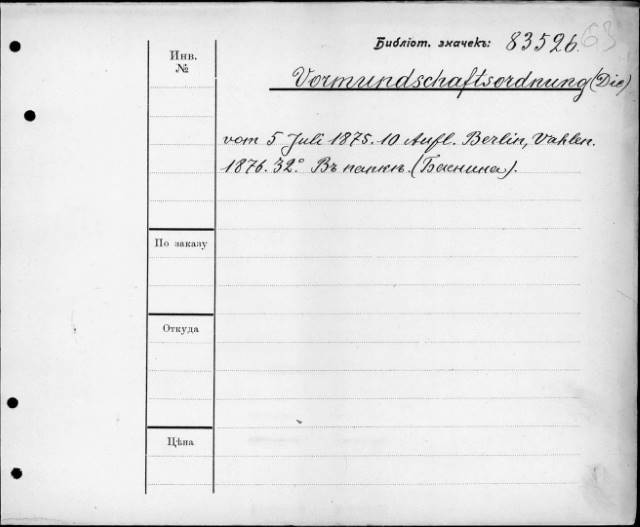 Библіот. значекъ: 83526. 63
Инв.
№
Vormundschaftsordnung (Die)
vom 5 Juli 1875. 10 Aufl. Berlin, Vahlen.
1876. 32° Въ папкѣ. (Баснина).
По заказу
Откуда
Цѣна